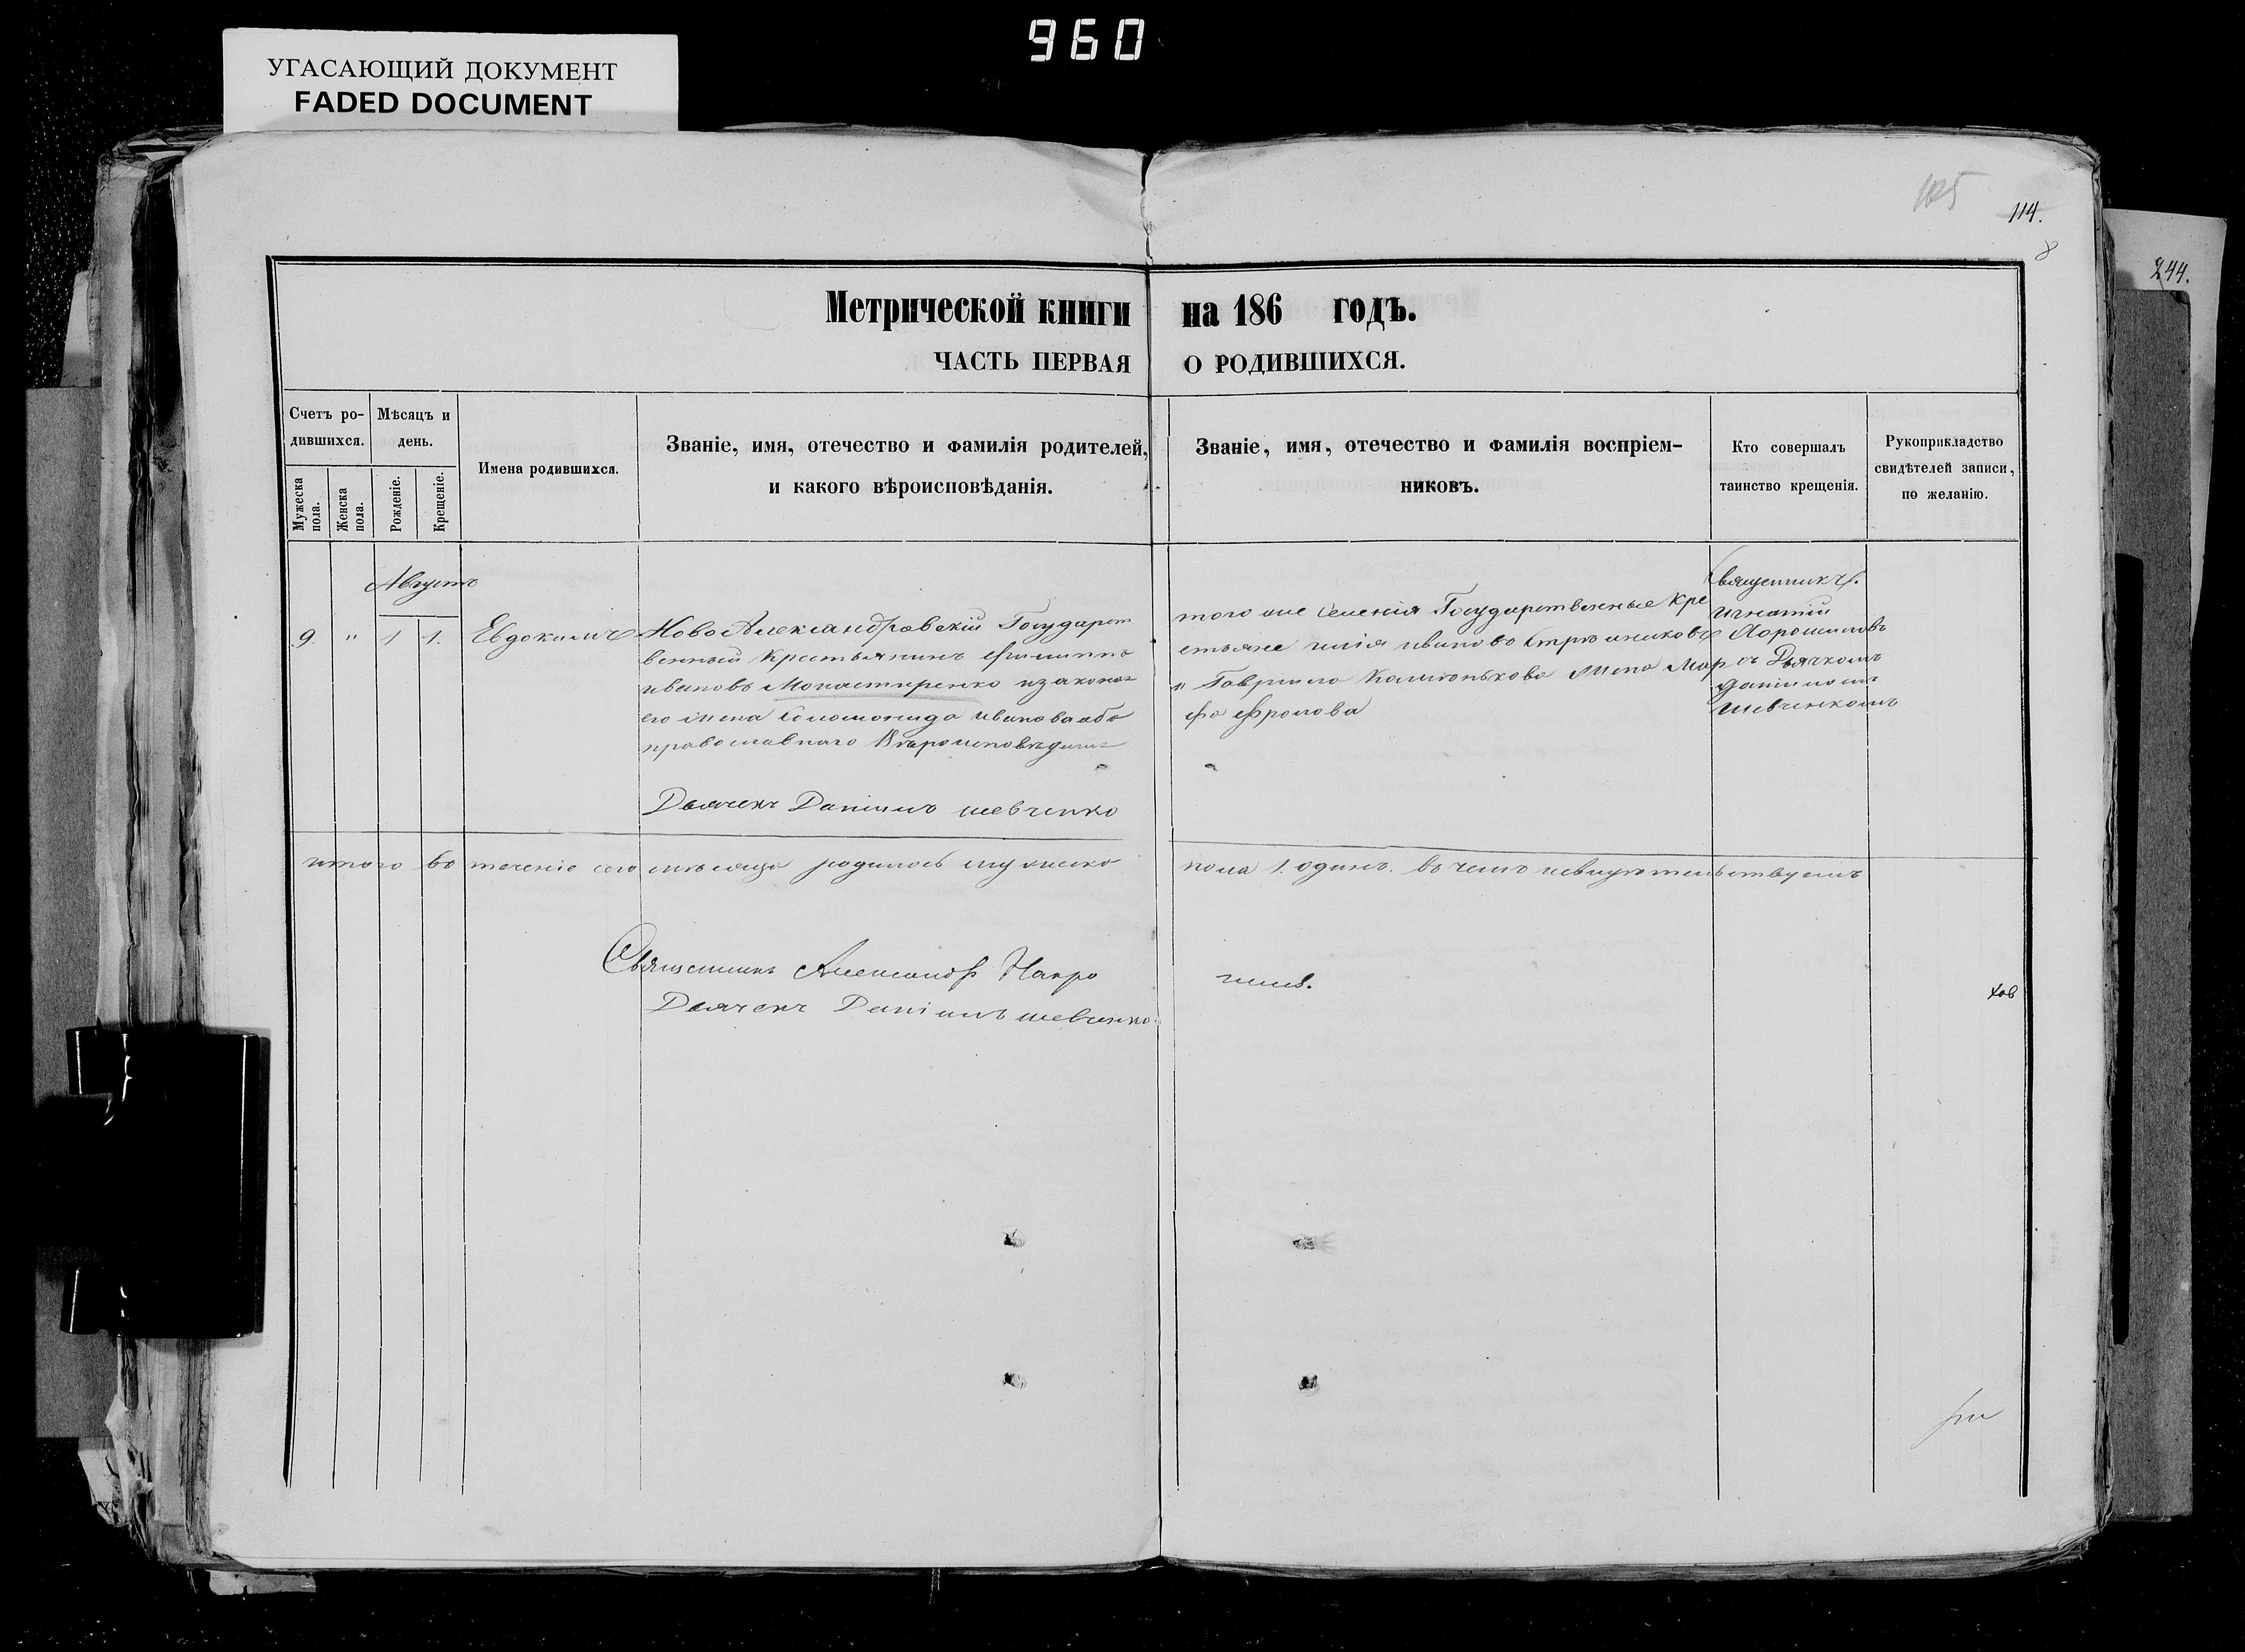 960
УГАСАЮЩИЙ ДОКУМЕНТ
FADED DOCUMENT
105
114.
8
244.
Метрической книги на 186 годъ.
ЧАСТЬ ПЕРВАЯ О РОДИВШИХСЯ.
Счетъ ро-
дившихся.
Мужеска
пола.
Женска
пола.
Мѣсяцъ и
день.
Рожденіе.
Крещеніе.
Имена родившихся.
Званіе, имя, отечество и фамилія родителей,
и какого вѣроисповѣданія.
Званіе, имя, отечество и фамилія воспріем-
никовъ.
Кто совершалъ
таинство крещенія.
Рукоприкладство
свидѣтелей записи,
по желанію.
Августъ
9.
"
1
1.
Евдокимъ
Ново Александровскій Государст
венный крестьянинъ Филиппъ
ивановъ Монастиренко изаконая
его жена Соломонида иванова обо
православнаго Вѣроисповѣданія
Дьячекъ Даніилъ шевченко
того же Селенія Государственные кре
стьяне илія иваново Стрѣльниковъ
и Гавриила жена Мар
фа Фролова
Священникъ
игнатій
Дорошиловъ
съ Дьячкомъ
Даніиломъ
шевченкомъ
итого во теченіе сего мѣсяца родилось мужеска пола 1. одинъ. въ чемъ исвидѣтельствуемъ
Священникъ Александр
Дьячекъ Даніилъ шевченко.
ков